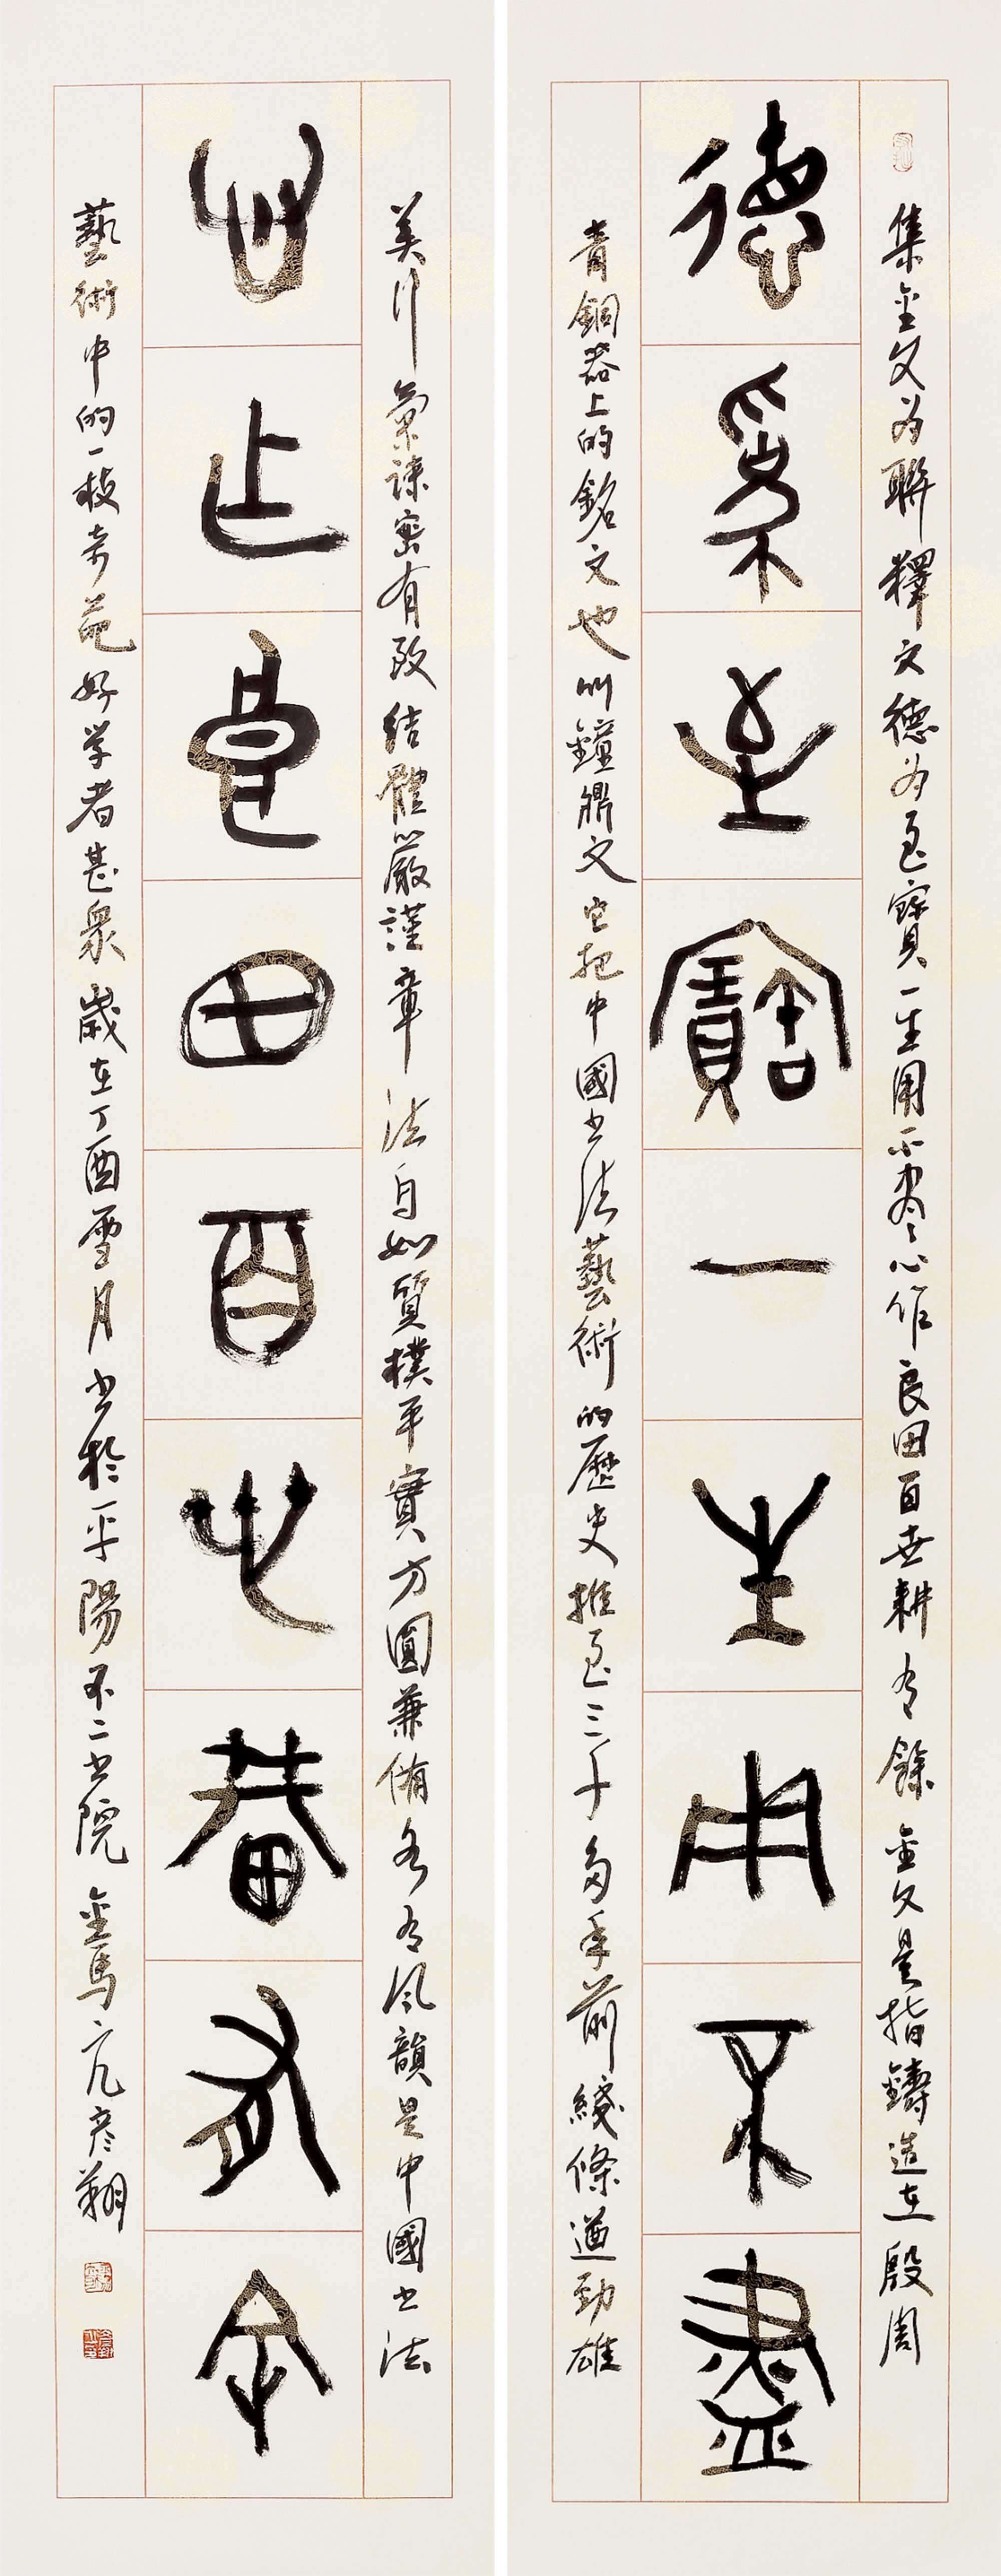 集金文为聯釋文德为至寶一生用不盡心作良田百世耕有餘金文是指鑄造在殷周
德為至寶一生用不盡
青銅器上的銘文也叫鐘鼎文它把中國书法藝術的歷史推至三千多年前綫條遒勁雄
美行氣疎密有致結體嚴謹章法自如質樸平實方圓兼備各有风韻是中國书法
心作良田百世耕有余
藝術中的一枝奇葩好学者甚眾歲在丁酉雪月书於平陽不二书院金馬亢彦翔